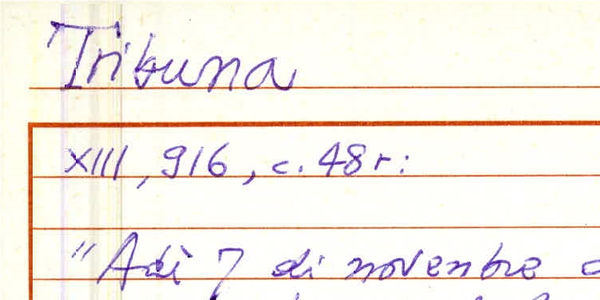 Tribuna
XIII, 916, c. 48 r:
"Adì 7 di novembre